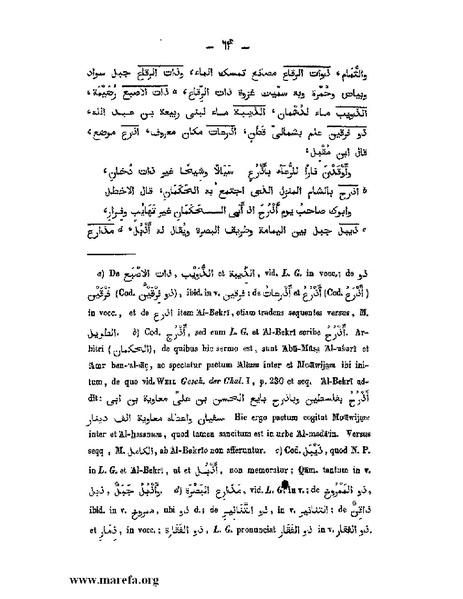 — ٦٣ —
والثمام، ذوات الرقاع مصانع تمسك الماء، وذات الرقاع جبل سواد
وبياض وحمرة وبه سميت غزوة ذات الرقاع، a ذات الاصبع رضيمة،
الذويب ماء لدهمان، الذيبة ماء لبنى ربيعة بن عبد الله،
ذو فرقين علم بشمالى قطن، اذرعات مكان معروف، اذرع موضع،
قال ابن مقبل،
وأوقدن نارًا للرعاء بأذرع سيالًا وشيحًا غير ذات دخان،
b اذرح بالشام المنزل الذى اجتمع به الحكمان، قال الاخطل
وابوك صاحب يوم أذرح اذ أبى الحكمان غير تهايب وضرار،
c ذييل جبل بين اليمامة وطريف البصرة ويقال له أذبل، d مذارع
a) De ذات الاصبع, الذويب et الذيبة, vid. L. G. in vocc.; de ذو
فرقين (Cod. ذو فرقين), ibid. in v. فرقين; de أذرعات et أذرع (Cod. أذرع)
in vocc., et de اذرع item Al-Bekrî, etiam tradens sequentes versus, M.
الطويل. b) Cod. أذرح, sed eum L. G. et Al-Bekrî scribe أذرح. Ar-
bitri (الحكمان), de quibus hic sermo est, sunt Abû-Mûsa Al-ašarî et
Amr ban-al-âç, ac spectatur pactum Alium inter et Moâwijam ibi ini-
tum, de quo vid. Weil Gesch. der Chal. I, p. 230 et seq. Al-Bekrî ad-
dit: أذرح بفلسطين وباذرح بايع الحسن بن على معاوية بن ابى
سفيان واعطاه معاوية الف دينار Hic ergo pactum cogitat Moâwijam
inter et Al-hasanum, quod tamen sancitum est in urbe Al-madâin. Versus
seqq , M. الكامل, ab Al-Bekrîo non afferuntur. c) Cod. ذييل, quod N. P.
in L. G. et Al-Bekrî, ut et أذبل, non memoratur; Qâm. tantum in v.
ذيل, وأذبل جبل. d) مذارع البصرة, vid. L. G. in v.; de ذو المروج,
ibid. in v. مروج, ubi d. ذو; de ذو التنانير, in v. التنانير; de ذاقن
et ذمار, in vocc.; ذو الفقار L. G. pronunciat ذو الفقار in v. ذو الفقار.
www.marefa.org